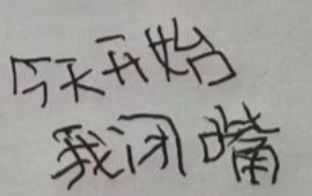 今天开始
我闭嘴